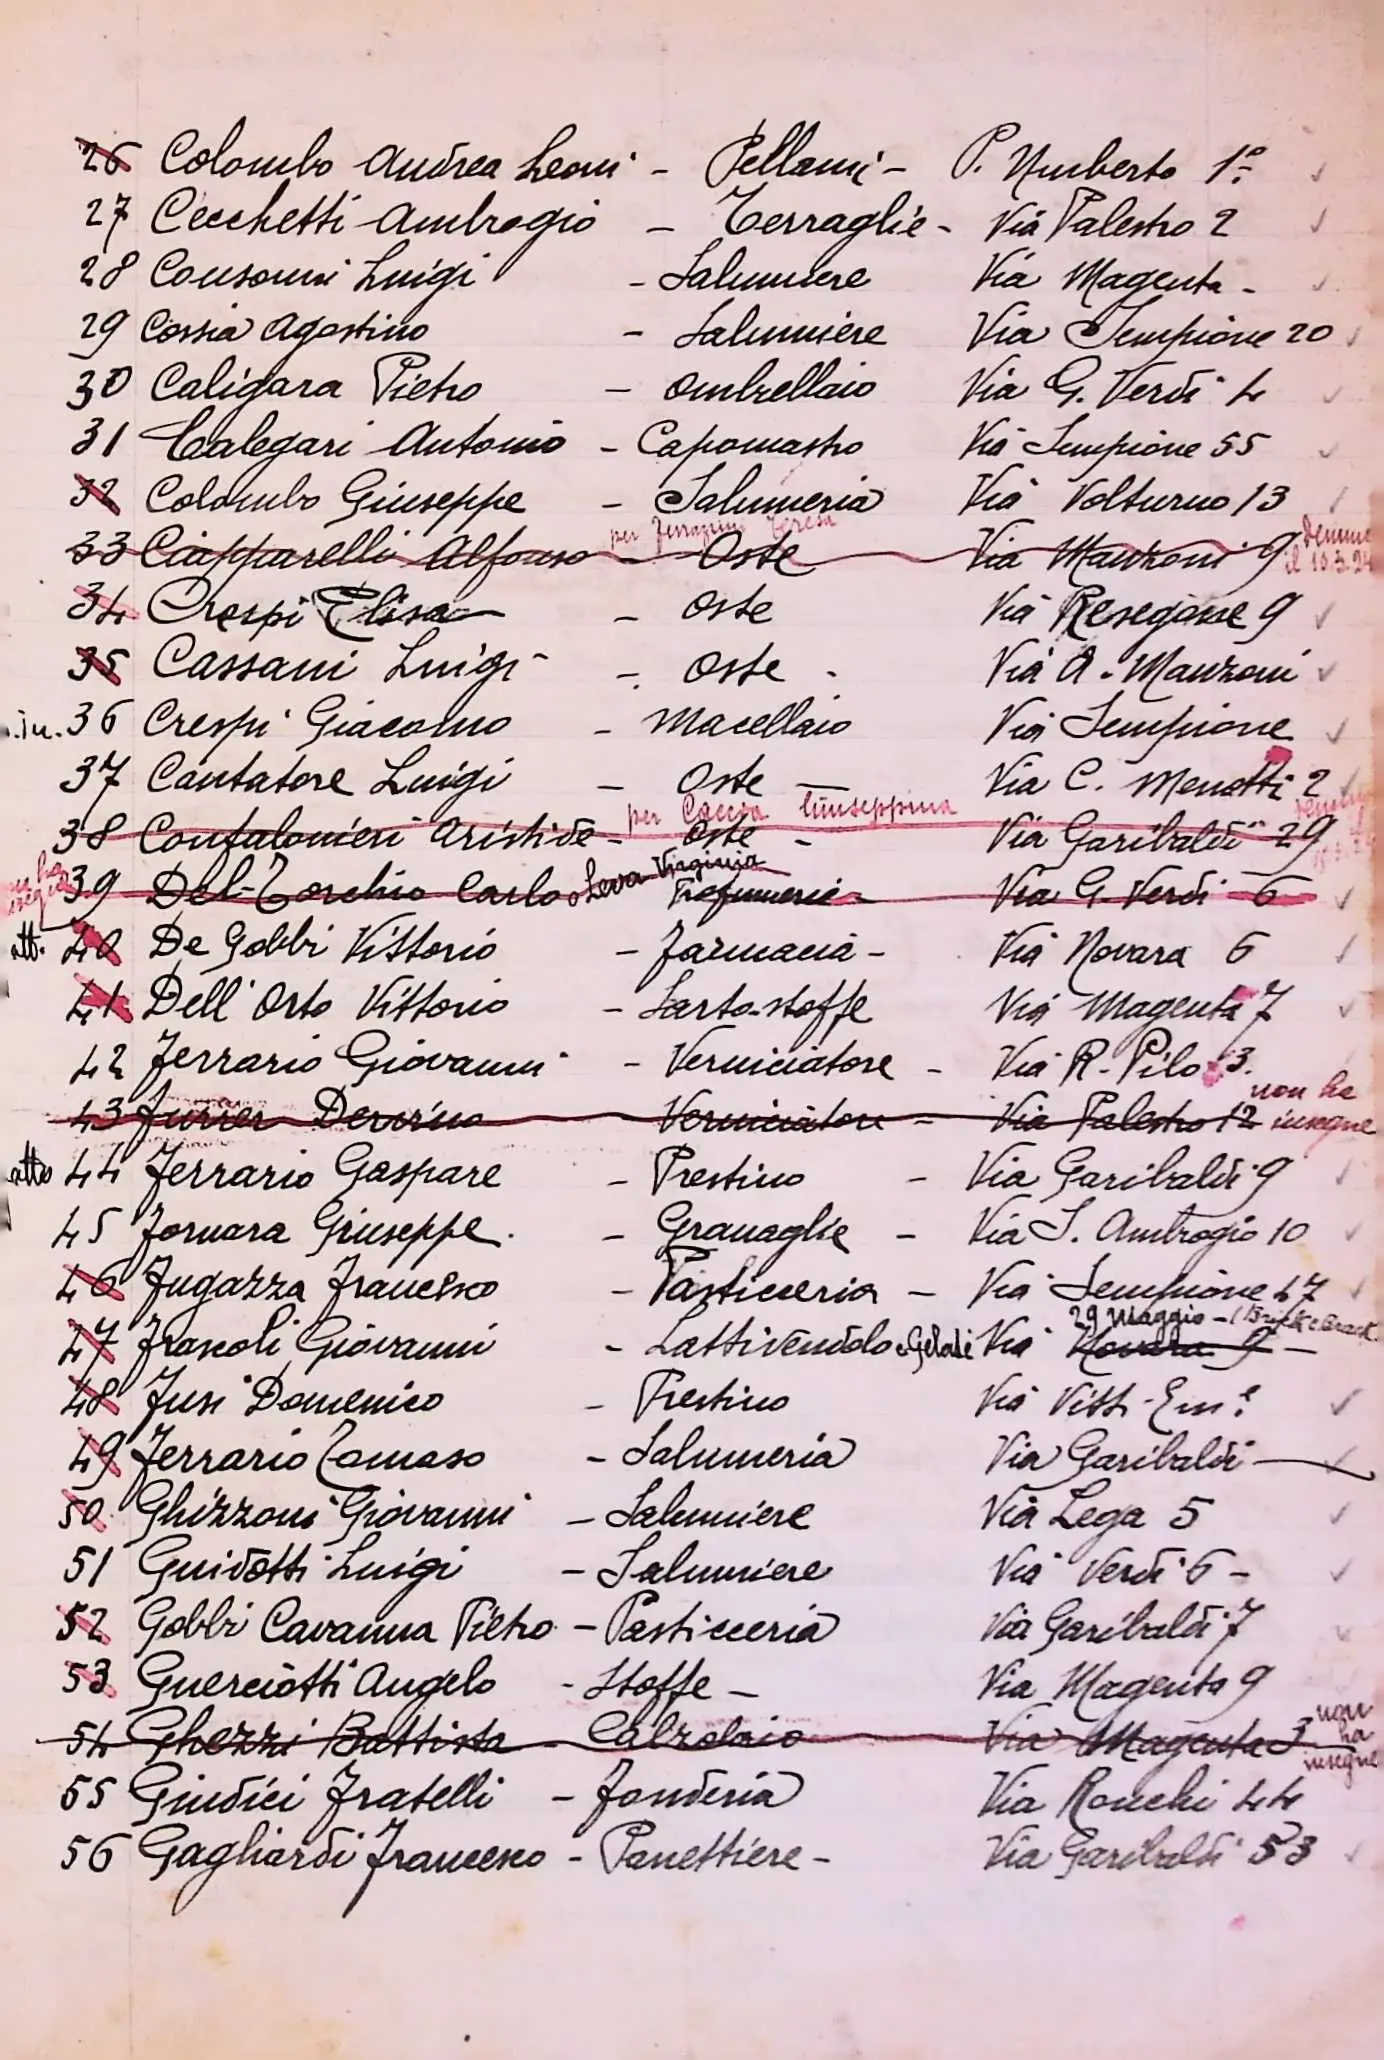 26 Colombo Andrea Leoni - Pellami - P. Umberto 1°.
27 Cecchetti Ambrogio - Terraglie - Via Palestro 2
28 Consonni Luigi - Salumiere Via Magenta -
29 Cossia Agostino - Salumiere Via Sempione 20
30 Caligara Pietro - Ombrellaio Via G. Verdi 4
31 Calegari Antonio - Capomastro Via Sempione 55
32 Colombo Giuseppe - Salumeria Via Volturno 13
per Ferrazzini Teresa
33 Ciapparelli Alfonso - Oste Via Manzoni 9 il 10.3.24
34 Crespi Elisa - Oste Via Resegone 9
35 Cassani Luigi - Oste - Via A. Manzoni
36 Crespi Giacomo - Macellaio Via Sempione
37 Cantatore Luigi - Oste - Via C. Menotti 2
per Caccia Giuseppina
38 Confalonieri Aristide - Oste - Via Garibaldi 29
39 Del-Torchio Carlo o Leva Virginia Profumerie - Via G. Verdi 6
att. 40 De Gobbi Vittorio - Farmacia - Via Novara 6
41 Dell' Orto Vittorio - Sarto-stoffe Via Magenta 7
42 Ferrario Giovanni - Verniciatore - Via R. Pilo 3.
43 Furrer Verniciatore - Via Palestro 12 non ha insegne
atto 44 Ferrario Gaspare - Prestino - Via Garibaldi 9
45 Fornara Giuseppe. - Granaglie - Via S. Ambrogio 10
46 Fugazza Francesco - Pasticceria - Via Sempione 47
29 Maggio -
47 Frascoli Giovanni - Lattivendolo e Gelati Via Novara 9 -
48 Fusi Domenico - Prestino Via Vitt. Em.e
49 Ferrario Tomaso - Salumeria Via Garibaldi
50 Ghizzoni Giovanni - Salumiere Via Lega 5
51 Guidotti Luigi - Salumiere Via Verdi 6 -
52 Gobbi Cavanna Pietro - Pasticceria Via Garibaldi 7
53 Guerciotti Angelo - Stoffe - Via Magenta 9
54 Ghezzi Battista - Calzolaio Via Magenta 3 non ha insegne
55 Giudici Fratelli - Fonderia Via Ronchi 44
56 Gagliardi Francesco - Panettiere - Via Garibaldi 53